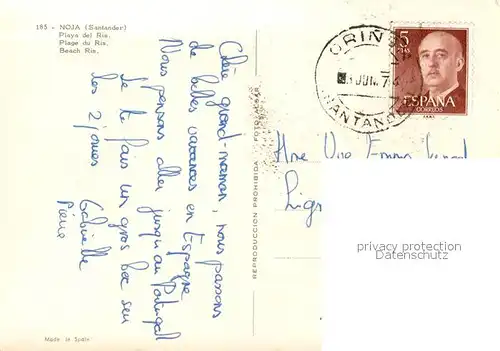 185 - NOJA (Santander)
Playa del Ris.
Plage du Ris.
Beach Ris.
Chère grand-maman, nous passons
de belles vacances en Espagne
Nous pensons aller jusqu'au Portugal
Je te fais un gros bec sur
les 2 joues
Gabrielle
Pierre
Made in Spain
REPRODUCCION PROHIBIDA
ORIÑON
JUN. 7
SANTANDER
5
PTAS
ESPAÑA
CORREOS
Mme Vve
privacy protection
Datenschutz